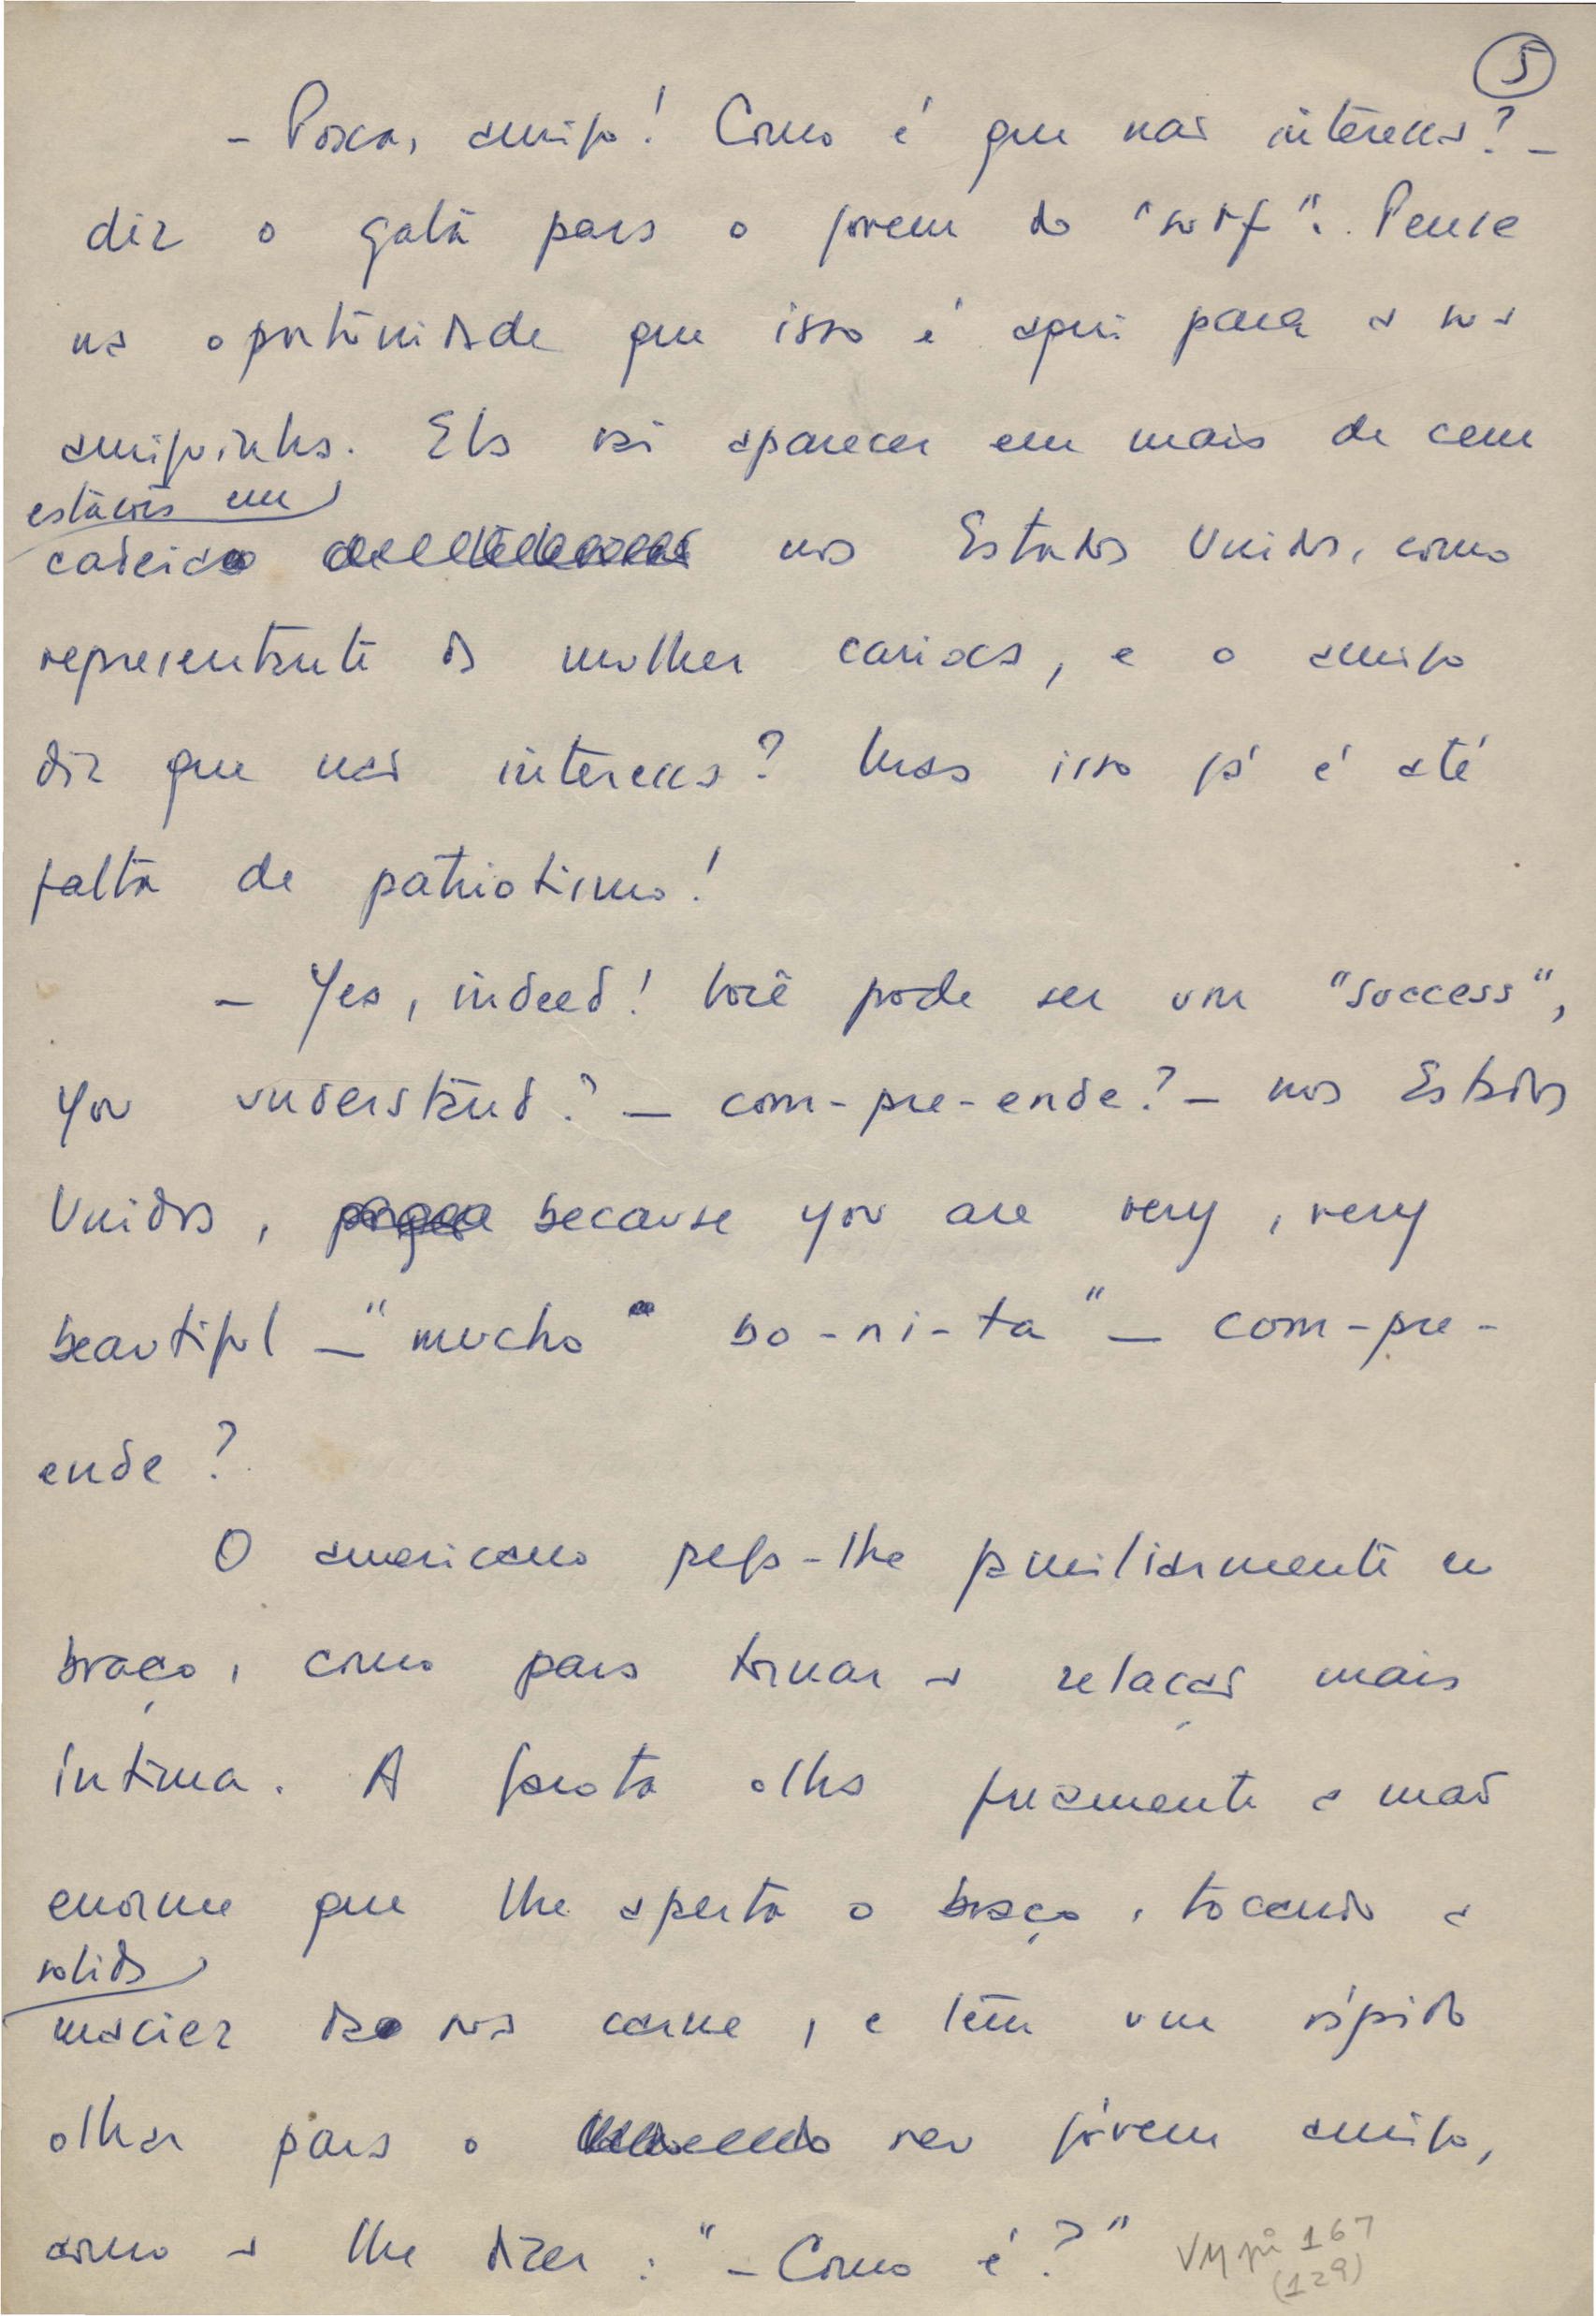 5
– Poxa, amigo! Como é que não interessa? –
diz o galã para o jovem do "surf". Pense
na oportunidade que isso é aqui para a sua
amiguinha. Ela vai aparecer em mais de cem
estações em
cadeia nos Estados Unidos, como
representante da mulher carioca, e o amigo
diz que não interessa? Mas isso já é até
falta de patriotismo!
– Yes, indeed! Você pode ser um "success",
you understand? – com-pre-ende? – nos Estados
Unidos, because you are very, very
beautiful – "mucho bo-ni-ta" – com-pre-
ende?
O americano pega-lhe familiarmente no
braço, como para tornar a relação mais
íntima. A garota olha friamente a mão
enorme que lhe aperta o braço, tocando a
solida
maciez da sua carne, e tem um rápido
olhar para o seu jóvem amigo,
como a lhe dizer: "– Como é?"
VM pi 167
(129)